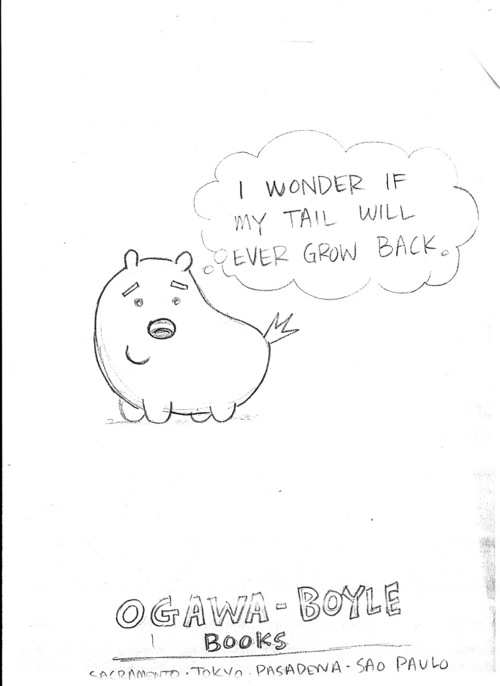 I WONDER IF
MY TAIL WILL
EVER GROW BACK.
OGAWA-BOYLE
BOOKS
SACRAMENTO · TOKYO · PASADENA · SAO PAULO